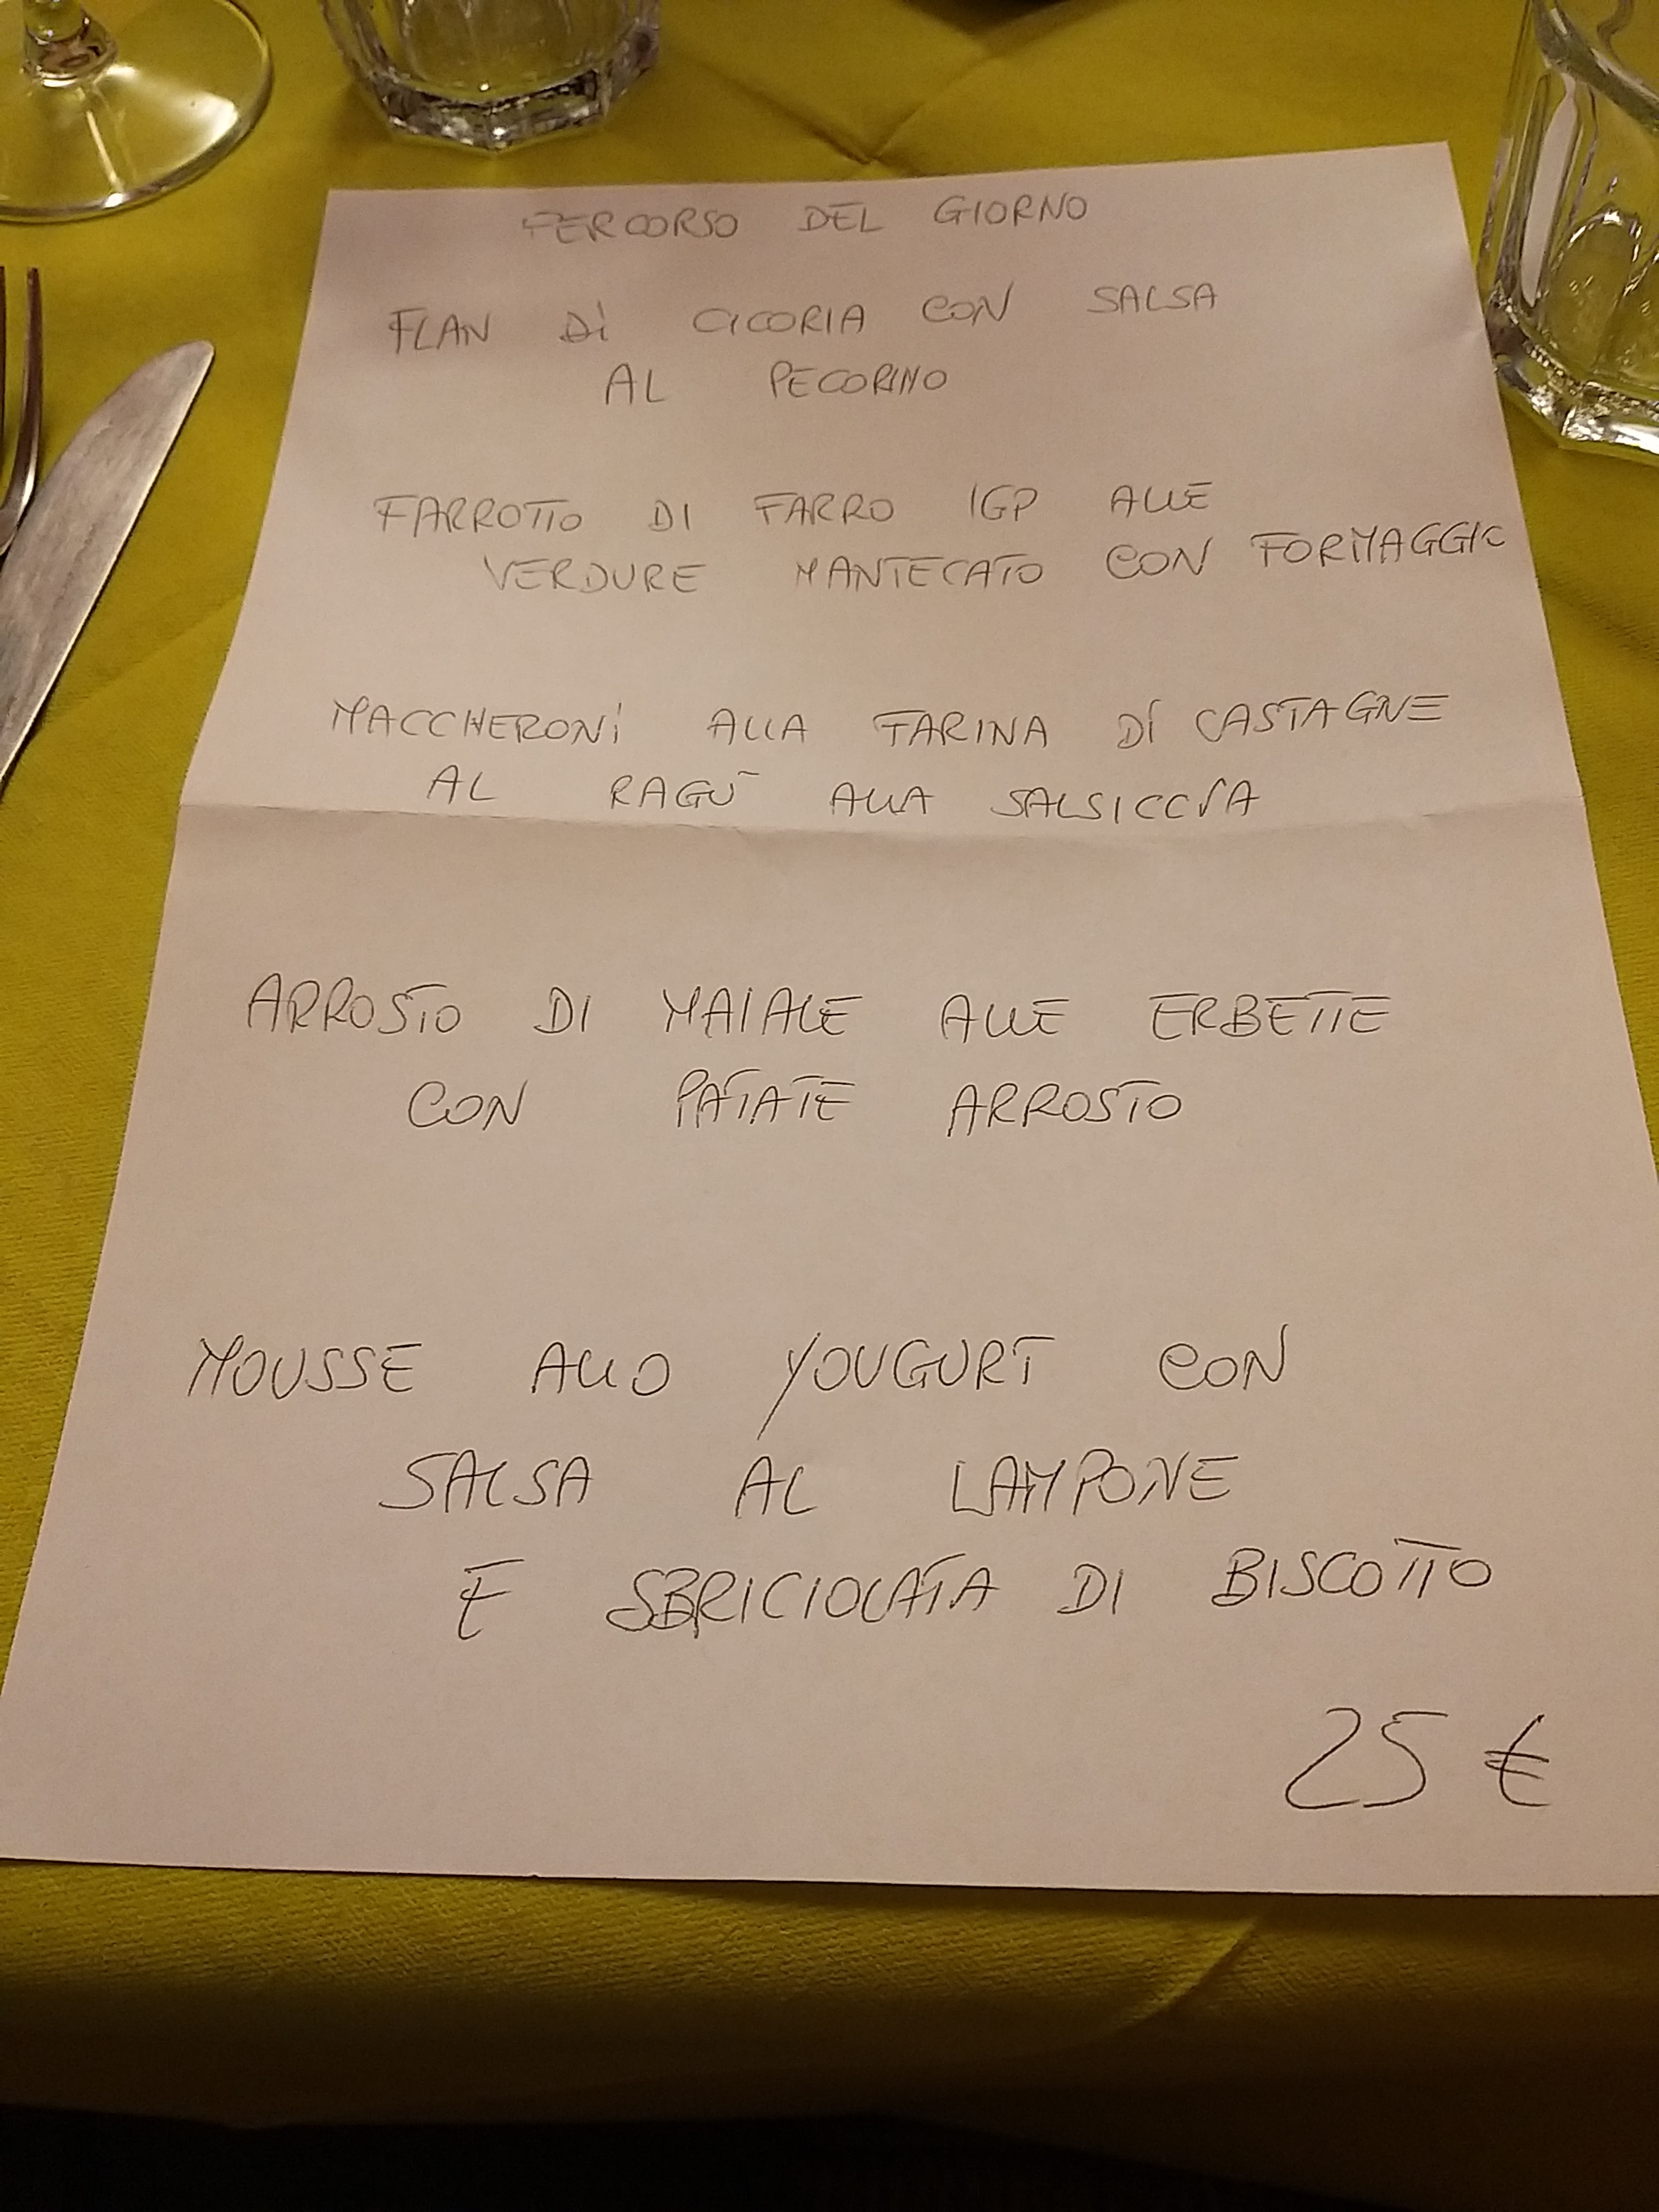 PERCORSO DEL GIORNO
FLAN Di CICORIA CON SALSA
AL PECORINO
FARROTTO DI FARRO IGP ALLE
VERDURE MANTECATO CON FORMAGGIO
MACCHERONi ALLA FARINA Di CASTAGNE
AL RAGÙ ALLA SALSICCIA
ARROSTO DI MAIALE ALLE ERBETTE
CON PATATE ARROSTO
MOUSSE ALLO YOUGURT CON
SALSA AL LAMPONE
E SBRICIOLATA DI BISCOTTO
25 €